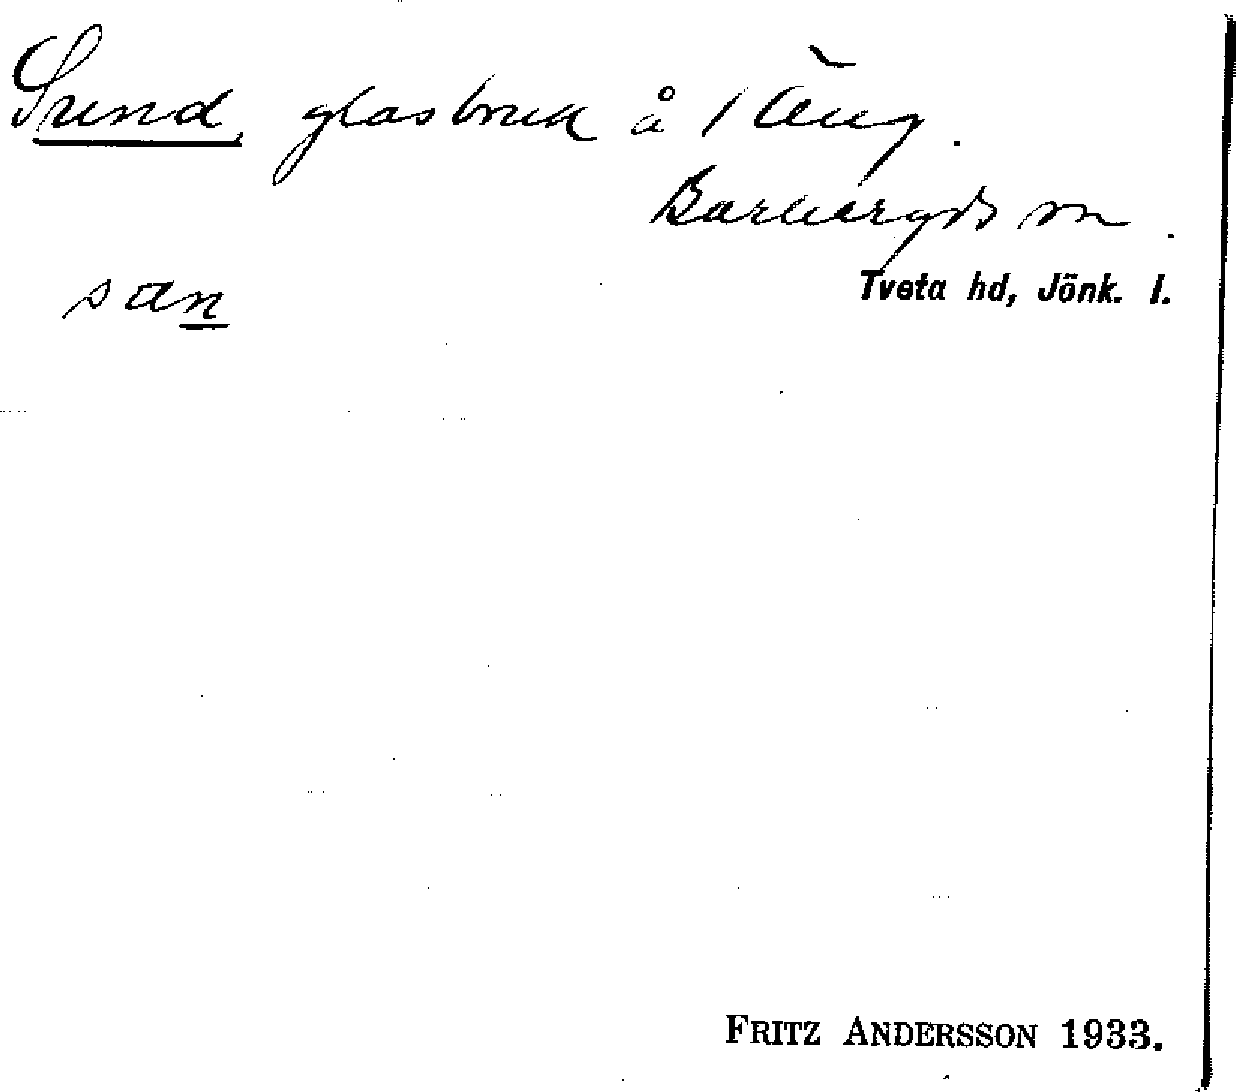 Sund, glasbruk å Täng.
Barkeryds sn.
Tveta hd, Jönk. l.
san
FRITZ ANDERSSON 1933.